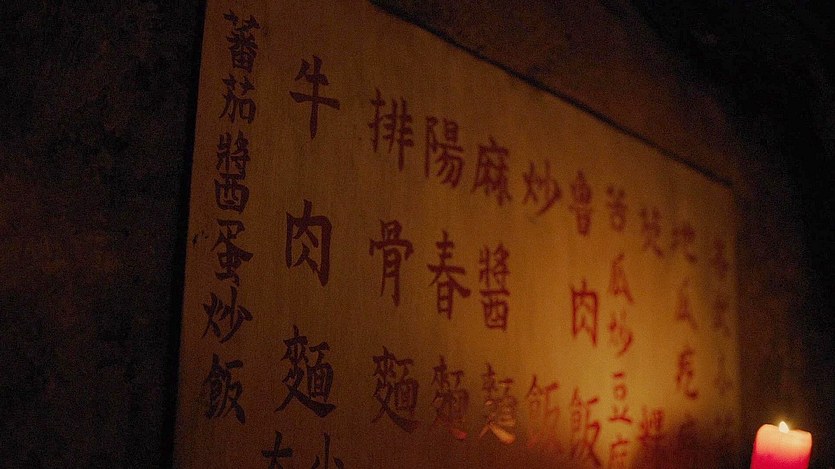 地瓜
苦瓜炒豆腐
魯肉飯
炒飯
麻醬麵
陽春麵
排骨麵
牛肉麵
小
大
蕃茄醬蛋炒飯